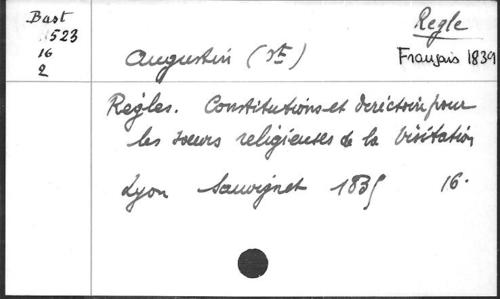 Bast
523
16
2
Regle
Français 1839
Augustin (St)
Règles. Constitutions et directoire pour
les sœurs religieuses de la Visitation
Lyon Sauvignet 1835 16.